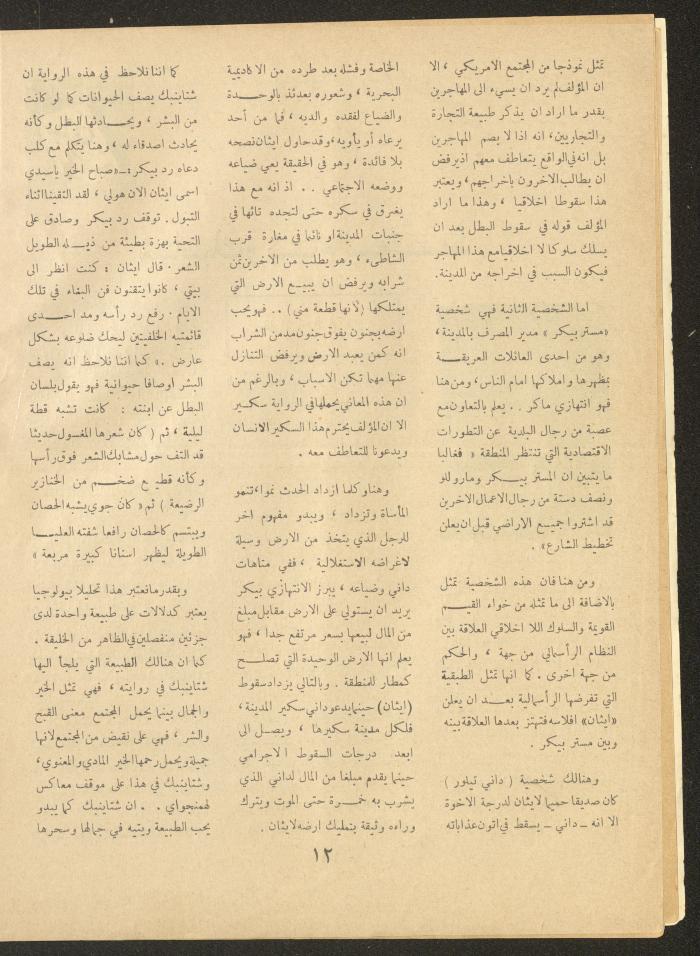 تمثل نموذجا من المجتمع الامريكي ، الا
ان المؤلف لم يرد ان يسيء الى المهاجرين
بقدر ما اراد ان يذكر طبيعة التجارة
والتجاريين، انه اذا لا يصم المهاجرين
بل انه في الواقع يتعاطف معهم اذ يرفض
ان يطالب الاخرون باخراجهم، ويعتبر
هذا سقوطا اخلاقيا ، وهذا ما اراد
المؤلف قوله في سقوط البطل بعد ان
يسلك سلوكا لا اخلاقيا مع هذا المهاجر
فيكون السبب في اخراجه من المدينة.
اما الشخصية الثانية فهي شخصية
«مستر بيكر » مدير المصرف بالمدينة ،
وهو من احدى العائلات العريقة
بمظهرها واملاكها امام الناس، ومن هنا
فهو انتهازي ماكر . . يعلم بالتعاون مع
عصبة من رجال البلدية عن التطورات
الاقتصادية التي تنتظر المنطقة « فغالبا
ما يتبين ان المستر بيكر ومارولو
ونصف دستة من رجال الاعمال الاخرين
قد اشتروا جميع الاراضي قبل ان يعلن
تخطيط الشارع» .
ومن هنا فان هذه الشخصية تمثل
بالاضافة الى ما تمثله من خواء القيم
القويمة والسلوك اللا اخلاقي العلاقة بين
النظام الرأسمالي من جهة ، والحكم
من جهة اخرى . كما انها تمثل الطبقية
التي تفرضها الرأسمالية بعد ان يعلن
«ايثان» افلاسه فتهتز بعدها العلاقة بينه
وبين مستر بيكر .
وهنالك شخصية ( داني تيلور )
كان صديقا حميما لايثان لدرجة الاخوة
الا انه – داني – يسقط في اتون عذاباته
الخاصة وفشله بعد طرده من الاكاديمية
البحرية ، وشعوره بعدئذ بالوحدة
والضياع لفقده والديه ، فما من أحد
يرعاه أو يأويه، وقد حاول ايثان نصحه
بلا فائدة ، وهو في الحقيقة يعي ضياعه
ووضعه الاجتماعي . . اذ انه مع هذا
يغرق في سكره حتى لتجده تائها في
جنبات المدينة او نائما في مغارة قرب
الشاطيء ، وهو يطلب من الاخرين ثمن
شرابه ويرفض ان يبيع الارض التي
يمتلكها (لأنها قطعة مني) .. فهو يحب
ارضه بجنون يفوق جنون مدمن الشراب
انه كمن يعبد الارض ويرفض التنازل
عنها مهما تكن الاسباب ، وبالرغم من
ان هذه المعاني يحملها في الرواية سكير
الا ان المؤلف يحترم هذا السكير الانسان
ويدعونا للتعاطف معه .
وهنا وكلما ازداد الحدث نموا، تنمو
المأساة وتزداد ، ويبدو مفهوم اخر
للرجل الذي يتخذ من الارض وسيلة
لاغراضه الاستغلالية ، ففي متاهات
داني وضياعه ، يبرز الانتهازي بيكر
يريد ان يستولي على الارض مقابل مبلغ
من المال ليبيعها بسعر مرتفع جدا ، فهو
يعلم انها الارض الوحيدة التي تصلح
كمطار للمنطقة . وبالتالي يزداد سقوط
(ايثان) حينما يدعو داني سكير المدينة ،
فلكل مدينة سكيرها ، ويصل الى
ابعد درجات السقوط الاجرامي
حينما يقدم مبلغا من المال لداني الذي
يشرب به خمرة حتى الموت ويترك
وراءه وثيقة بتمليك ارضه لايثان .
كما اننا نلاحظ في هذه الرواية ان
شتاينبك يصف الحيوانات كما لو كانت
من البشر ، ويحادثها البطل وكأنه
يحادث اصدقاء له ، وهنا يتكلم مع كلب
دعاه رد بيكر :– «صباح الخير يا سيدي
اسمى ايثان الان هولي ، لقد التقينا اثناء
التبول . توقف رد بيكر وصادق على
التحية بهزة بطيئة من ذيله الطويل
الشعر . قال ايثان : كنت انظر الى
بيتي ، كانوا يتقنون فن البناء في تلك
الايام . رفع رد رأسه ومد احدى
قائمتيه الخلفيتين ليحك ضلوعه بشكل
عارض .» كما اننا نلاحظ انه يصف
البشر اوصافا حيوانية فهو يقول بلسان
البطل عن ابنته : كانت تشبه قطة
ليلية ، ثم ( كان شعرها المغسول حديثا
قد التف حول مشابك الشعر فوق رأسها
وكأنه قطيع ضخم من الخنازير
الرضيعة ) ثم «كان جوي يشبه الحصان
ويبتسم كالحصان رافعا شفته العليا
الطويلة ليظهر اسنانا كبيرة مربعة »
وبقدر ما نعتبر هذا تحليلا بيولوجيا
يعتبر كدلالات على طبيعة واحدة لدى
جزئين منفصلين في الظاهر من الخليقة .
كما ان هنالك الطبيعة التي يلجأ اليها
شتاينبك في روايته ، فهي تمثل الخير
والجمال بينما يحمل المجتمع معنى القبح
والشر ، فهي على نقيض من المجتمع لانها
جميلة ويحمل رحمها الخير المادي والمعنوي ،
وشتاينبك في هذا على موقف معاكس
لهمنجواي . . ان شتاينبك كما يبدو
يحب الطبيعة ويتيه في جمالها وسحرها
١٢